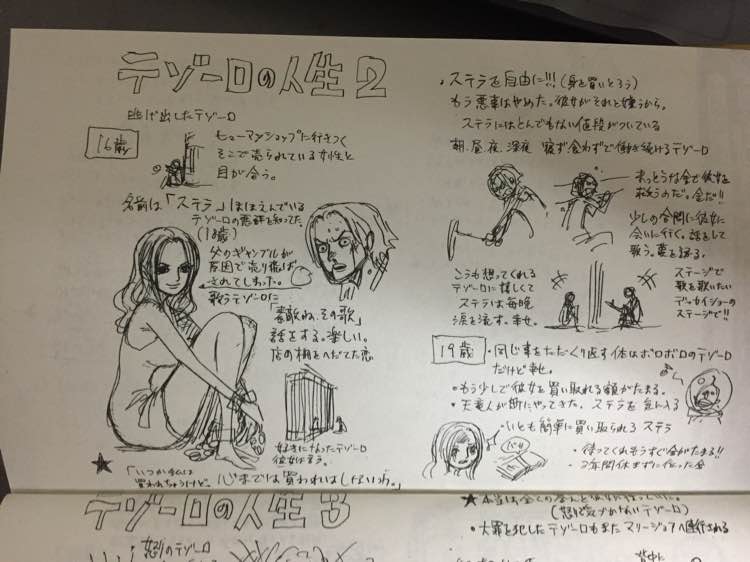 テゾーロの人生2
逃げ出したテゾーロ
16歳
ヒューマンショップに行きつく
そこで売られている女性と
目が合う。
名前は「ステラ」ほほえんでいる
テゾーロの悪評を知ってた
(18歳)
父のギャンブルが
原因で売り飛ば
されてしまった。
歌うテゾーロに
「素敵ね、その歌」
話をする。楽しい。
店の柵をへだてた恋
好きになったテゾーロ
彼女は言う。
★「いつか私は
買われちゃうけど、心までは買われはしないから。」
・ステラを自由に!!!(身を買いとろう)
もう悪事はやめた。彼女がそれを嫌うから。
ステラにはとんでもない値段がついている
朝、昼、夜、深夜 寝ず食わずで働き続けるテゾーロ
まっとうな金で彼女を
救うのだ。金だ!!
少しの合間に彼女に
会いに行く。話をして
歌う。夢を語る。
こうも想ってくれる
テゾーロに嬉しくて
ステラは毎晩
涙を流す。幸せ。
ステージで
歌を歌いたい
デッカイショーの
ステージで!!
19歳
・同じ事をただくり返す 体はボロボロのテゾーロ
だけど幸せ。
・もう少しで彼女を買い取れる額がたまる。
・天竜人が店にやってきた。ステラを気に入る
・いとも簡単に買い取られるステラ
・待ってくれもうすぐ金がたまる!!
・2年間休まずに作った金
テゾーロの人生3
怒りのテゾーロ
(怒気づかないテゾーロ)
・大罪を犯したテゾーロもまたマリージョアへ連行される
背中に